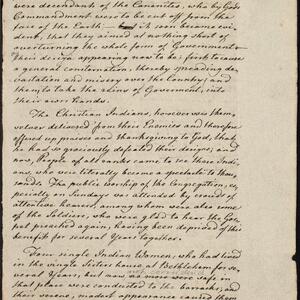 were descendants of the Canaanites, who by God's
Commandment were to be cut off from the
face of the Earth it soon became evi-
dent, that they aimed at nothing short of
overturning the whole form of Government.
Their design appearing now to be, first to cause
a general consternation, thereby spreading de-
vastation and misery over the Country; and
then, to take the reins of Government, into
their own hands.
The Christian Indians, however saw them-
selves delivered from their Enemies and therefore
offered up praises and thanksgiving to God, that
he had so graciously defeated their designs, and
now, People of all ranks came to see these Indi-
ans, who were literally become a spectacle to thou-
sands. The public worship of the Congregation, es-
pecially on Sunday was attended by crowds of
attentive hearers, among whom were also some
of the Soldiers, who were glad to hear the Gos-
pel preached again, having been deprived of this
benefit for several Years together.
Four single Indian Women, who had lived
in the single Sisters house at Bethlehem for se-
veral Years, but now no more were safe at
that place were conducted to the barracks, and
their serene, modest appearance caused them